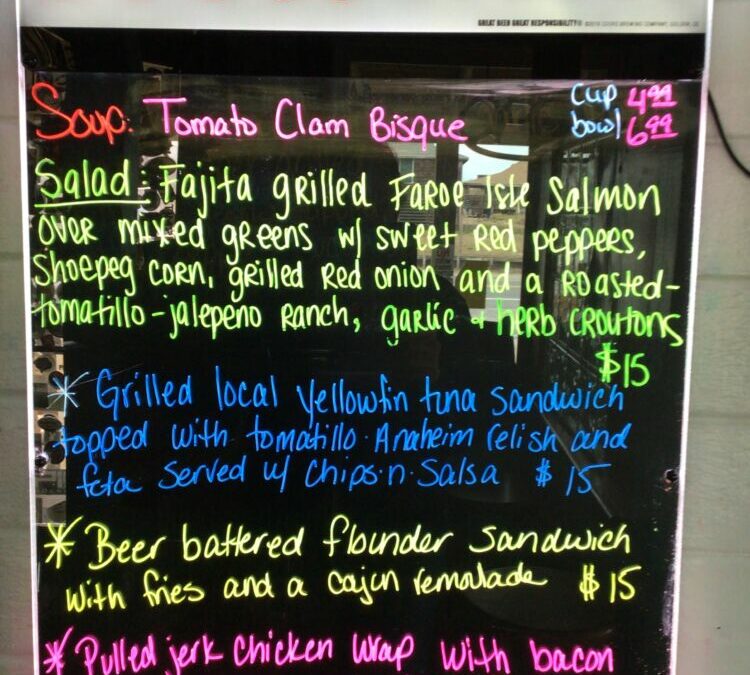 GREAT BEER GREAT RESPONSIBILITY®
Soup: Tomato Clam Bisque
Cup 4.99
bowl 6.99
Salad: Fajita grilled Faroe Isle Salmon
over mixed greens w/ sweet Red peppers,
Shoepeg corn, grilled Red onion and a Roasted-
tomatillo-jalepeno Ranch, garlic + herb croutons
$15
* Grilled local yellowfin tuna sandwich
topped with tomatillo·Anaheim relish and
feta served w/ Chips·n·Salsa $15
* Beer battered flounder sandwich
with fries and a cajun remoulade $15
* Pulled jerk chicken wrap with bacon